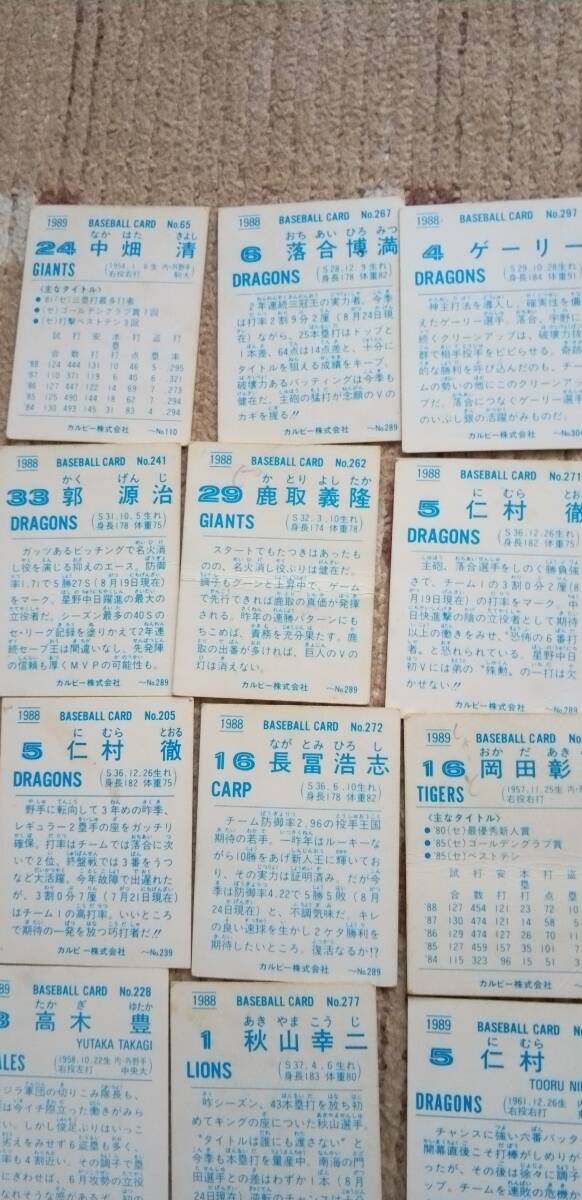 1989 BASEBALL CARD No.65
なか はた きよし
24 中畑 清
GIANTS
(1954.1.6生 内・外野手 右投右打 駒大)
〈主なタイトル〉
●'81(セ)三塁打最多11者
●(セ)ゴールデングラブ賞7回
●(セ)打撃ベストテン3回
試合 打数 安打 本塁打 打点 盗塁 打率
'88 124 444 131 10 46 5 .295
'86 127 447 122 14 69 7 .273
'85 125 490 144 18 62 7 .294
'84 130 493 145 31 83 4 .294
カルビー株式会社 〜No.110
1988 BASEBALL CARD No.267
おち あい ひろ みつ
6 落合博満
DRAGONS
(S28.12.9生れ 身長178 体重82)
2年連続三冠王の実力者。今季
は打率2割9分2厘(8月24日現在)
ながら、25本塁打はトップと
1本差、64点は14点差と、十分に
タイトルを狙える成績をキープ。
破壊力あるバッティングは今季も
健在だ。主砲の猛打が念願のVの
カギを握る!!
カルビー株式会社 〜No.289
1988 BASEBALL CARD No.297
4 ゲーリー
DRAGONS
(S29.10.28生れ 身長184 体重91
カルビー株式会社
1988 BASEBALL CARD No.241
かく げん じ
33 郭 源治
DRAGONS
(S31.10.5生れ 身長178 体重75)
ガッツあるピッチングで名火消
し役を演じる抑えのエース。防御
率1.71で5勝27S(8月19日現在)
をマーク。星野中日躍進の最大の
立役者だ。シーズン最多の40Sの
セ・リーグ記録を塗りかえて2年連
続セーブ王は間違いなし。先発陣
の信頼も厚くMVPの可能性も。
カルビー株式会社 〜No.289
1988 BASEBALL CARD No.262
か とり よし たか
29 鹿取義隆
GIANTS
(S32.3.10生れ 身長174 体重78)
スタートでもたつきはあったも
のの、名火消し役ぶりは健在だ。
調子もグーンと上昇中で、ゲーム
で先行できれば鹿取の真価が発揮
される。昨年の連勝パターンにも
ちこめば、責務を充分果たす。鹿
取の出番が多ければ、巨人のV
の灯は消えない。
カルビー株式会社 〜No.289
1988 BASEBALL CARD No.271
に むら とおる
5 仁村 徹
DRAGONS
(S36.12.26生れ 身長182 体重75)
主砲、落合選手をしのぐ勝負強
さで、チーム1の3割0分2厘(
月19日現在)の打率をマーク。中
日快進撃の陰の立役者として期待
以上の働きをみせ、"恐怖の6番打
者"と恐れられている。星野中日
初Vには弟の"殊勲"の一打は欠
かせない!!
カルビー株式会社
1988 BASEBALL CARD No.205
に むら とおる
5 仁村 徹
DRAGONS
(S36.12.26生れ 身長182 体重75)
野手に転向して3年めの昨季、
レギュラー2塁手の座をガッチリ
確保。打率はチームでは落合に次
いで2位。終盤戦では3番をうつ
など大活躍。今年故障で出遅れた
が、3割0分7厘(7月21日現在)は
チーム1の高打率。いいところ
で期待の一発を放つ巧打者だ!!
カルビー株式会社 〜No.239
1988 BASEBALL CARD No.272
なが とみ ひろ し
16 長冨浩志
CARP
(S36.6.10生れ 身長182 体重82)
チーム防御率2.96の投手王国
期待の若手。一昨年はルーキーな
がら10勝をあげ新人王に輝いてお
り、その実力は証明済み。だが今
季は防御率4.22で5勝5敗(8月
24日現在)と、不調気味だ。キレ
の良い速球を生かし2ケタ勝利を
期待したいところ。復活なるか!?
カルビー株式会社 〜No.289
1989 BASEBALL CARD No.
おか だ あき
16 岡田彰
TIGERS
(1957.11.25生 右投右打
〈主なタイトル〉
●'80(セ)最優秀新人賞
●'85(セ)ゴールデングラブ賞
●'85(セ)ベストテン
試合 打数 安打 本塁打 打点
'88 127 454 121 23 72
'87 130 474 121 14 58
'86 129 474 127 26 70
'85 127 459 157 35 101
'84 115 323 96 15 51
カルビー株式会社
89 BASEBALL CARD No.228
たか ぎ ゆたか
高木 豊
YUTAKA TAKAGI
ALES
(1958.10.22生 内・外野手 右投左打 中央大)
1988 BASEBALL CARD No.277
あき やま こう じ
1 秋山幸二
LIONS
(S37.4.6生れ 身長183 体重80)
昨シーズン、43本塁打を放ち初
めてキングの座についた秋山選手
"タイトルは誰にも渡さない"と
今季も本塁打を量産中。南海の門
田選手との差はわずか1本(8月
1989 BASEBALL CARD No.
に むら
5 仁村
TOORU NI
DRAGONS
(1961.12.26生 内 右投右打
チャンスに強い六番バッタ
開幕直後こそ打棒がしめりが
ったが、その後は徐々に調子